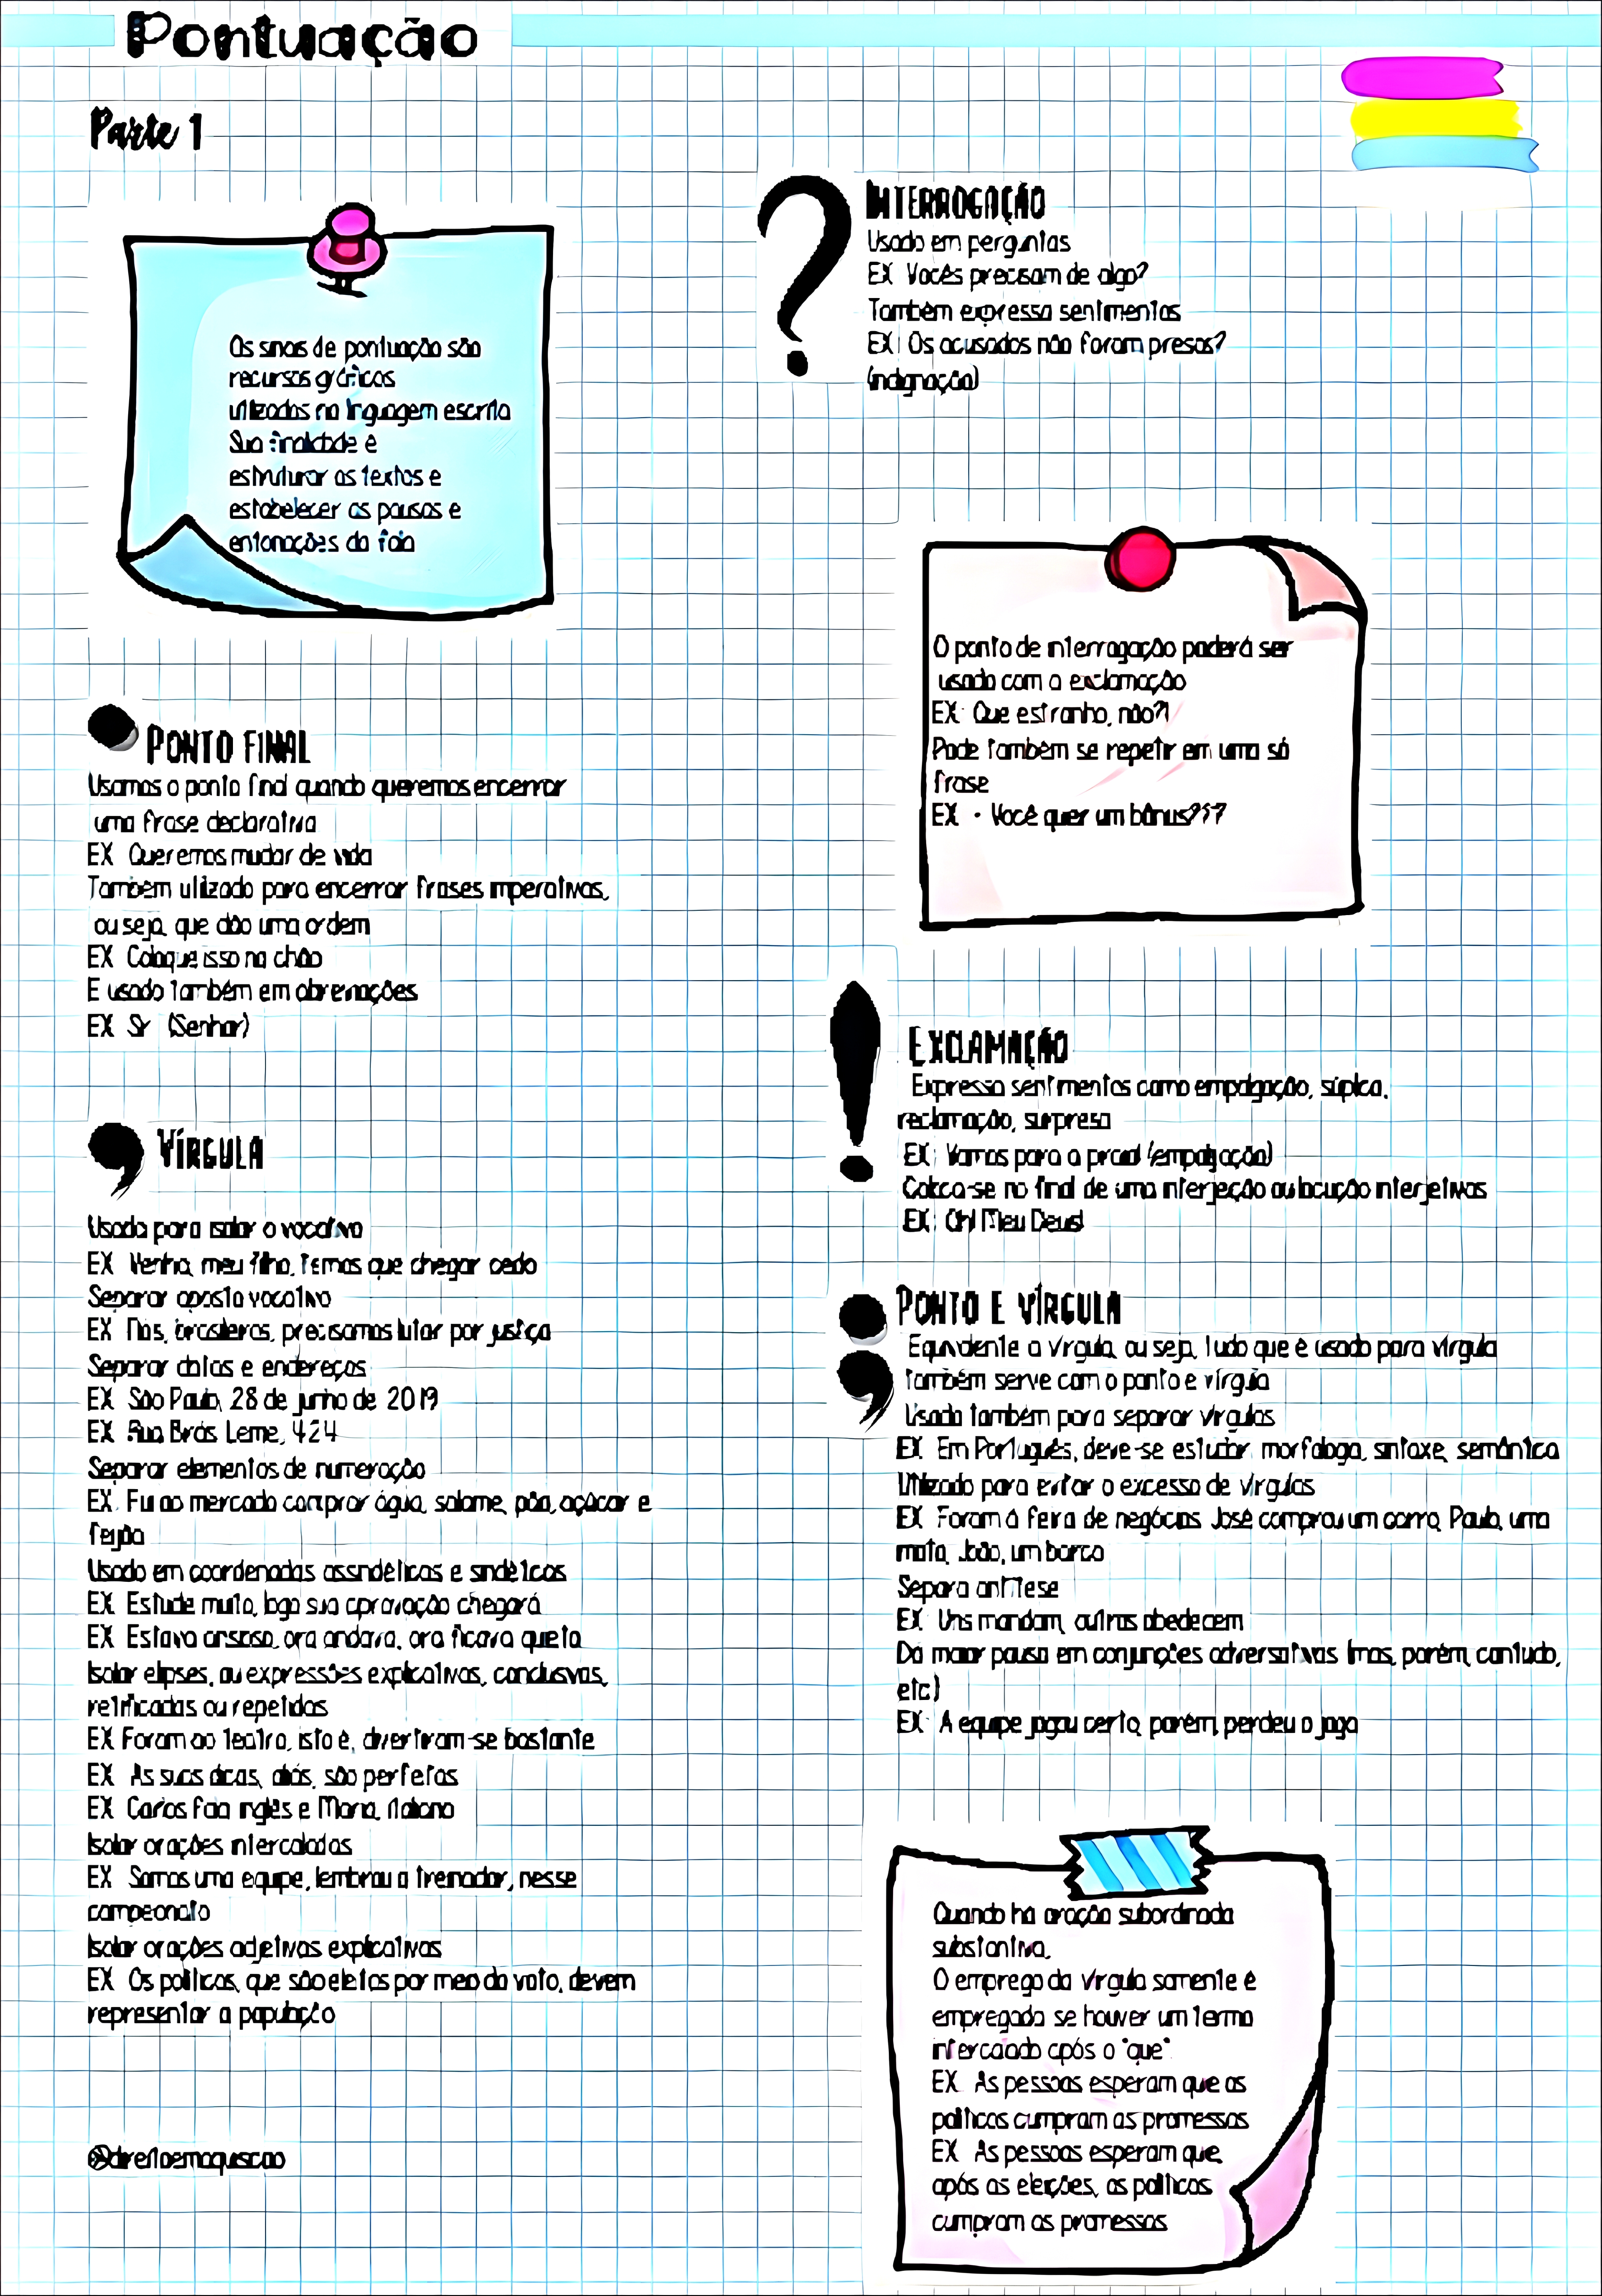 Pontuação
Parte 1
Os sinais de pontuação são
recursos gráficos
utilizados na linguagem escrita
Sua finalidade é
estruturar os textos e
estabelecer as pausas e
entonações da fala
PONTO FINAL
Usamos o ponto final quando queremos encerrar
uma frase declarativa
EX Queremos mudar de vida
Também utilizado para encerrar frases imperativas,
ou seja, que dão uma ordem
EX Coloque isso no chão
É usado também em abreviações
EX Sr (Senhor)
VÍRGULA
Usada para isolar o vocativo
EX Venha, meu filho, temos que chegar cedo
Separar aposto vocativo
EX Nós, brasileiros, precisamos lutar por justiça
Separar datas e endereços
EX São Paulo, 28 de junho de 2019
EX Rua Brás Leme, 424
Separar elementos de numeração
EX Fui ao mercado comprar água, salame, pão, açúcar e
feijão
Usado em coordenadas assindéticas e sindéticas
EX Estude muito, logo sua aprovação chegará
EX Estava ansiosa, ora andava, ora ficava quieta
Isolar elipses, ou expressões explicativas, conclusivas,
retificadas ou repetidas
EX Foram ao teatro, isto é, divertiram-se bastante
EX As suas dicas, aliás, são perfeitas
EX Carlos fala inglês e Maria, italiano
Isolar orações intercaladas
EX Somos uma equipe, lembrou o treinador, nesse
campeonato
Isolar orações adjetivas explicativas
EX Os políticos, que são eleitos por meio do voto, devem
representar a população
@direitoemaquescao
INTERROGAÇÃO
Usado em perguntas
EX Vocês precisam de algo?
Também expressa sentimentos
EX: Os acusados não foram presos?
(indignação)
O ponto de interrogação poderá ser
usado com a exclamação
EX: Que estranho, não?!
Pode também se repetir em uma só
frase
EX - Você quer um bônus???
EXCLAMAÇÃO
Expressa sentimentos como empolgação, súplica,
reclamação, surpresa
EX: Vamos para a praia! (empolgação)
Coloca-se no final de uma interjeição ou locução interjetivas
EX: Oh! Meu Deus!
PONTO E VÍRGULA
Equivalente a vírgula, ou seja, tudo que é usado para vírgula
também serve com o ponto e vírgula
Usado também para separar vírgulas
EX Em Português, deve-se estudar: morfologia, sintaxe, semântica
Utilizado para evitar o excesso de vírgulas
EX Foram à feira de negócios José comprou um carro, Paulo, uma
moto, João, um barco
Separa antítese
EX Uns mandam, outros obedecem
Dá maior pausa em conjunções adversativas (mas, porém, contudo,
etc)
EX A equipe jogou certo, porém, perdeu o jogo
Quando há oração subordinada
substantiva,
O emprego da vírgula somente é
empregada se houver um termo
intercalado após o "que"
EX As pessoas esperam que os
políticos cumpram as promessas
EX As pessoas esperam que,
após as eleições, os políticos
cumpram as promessas